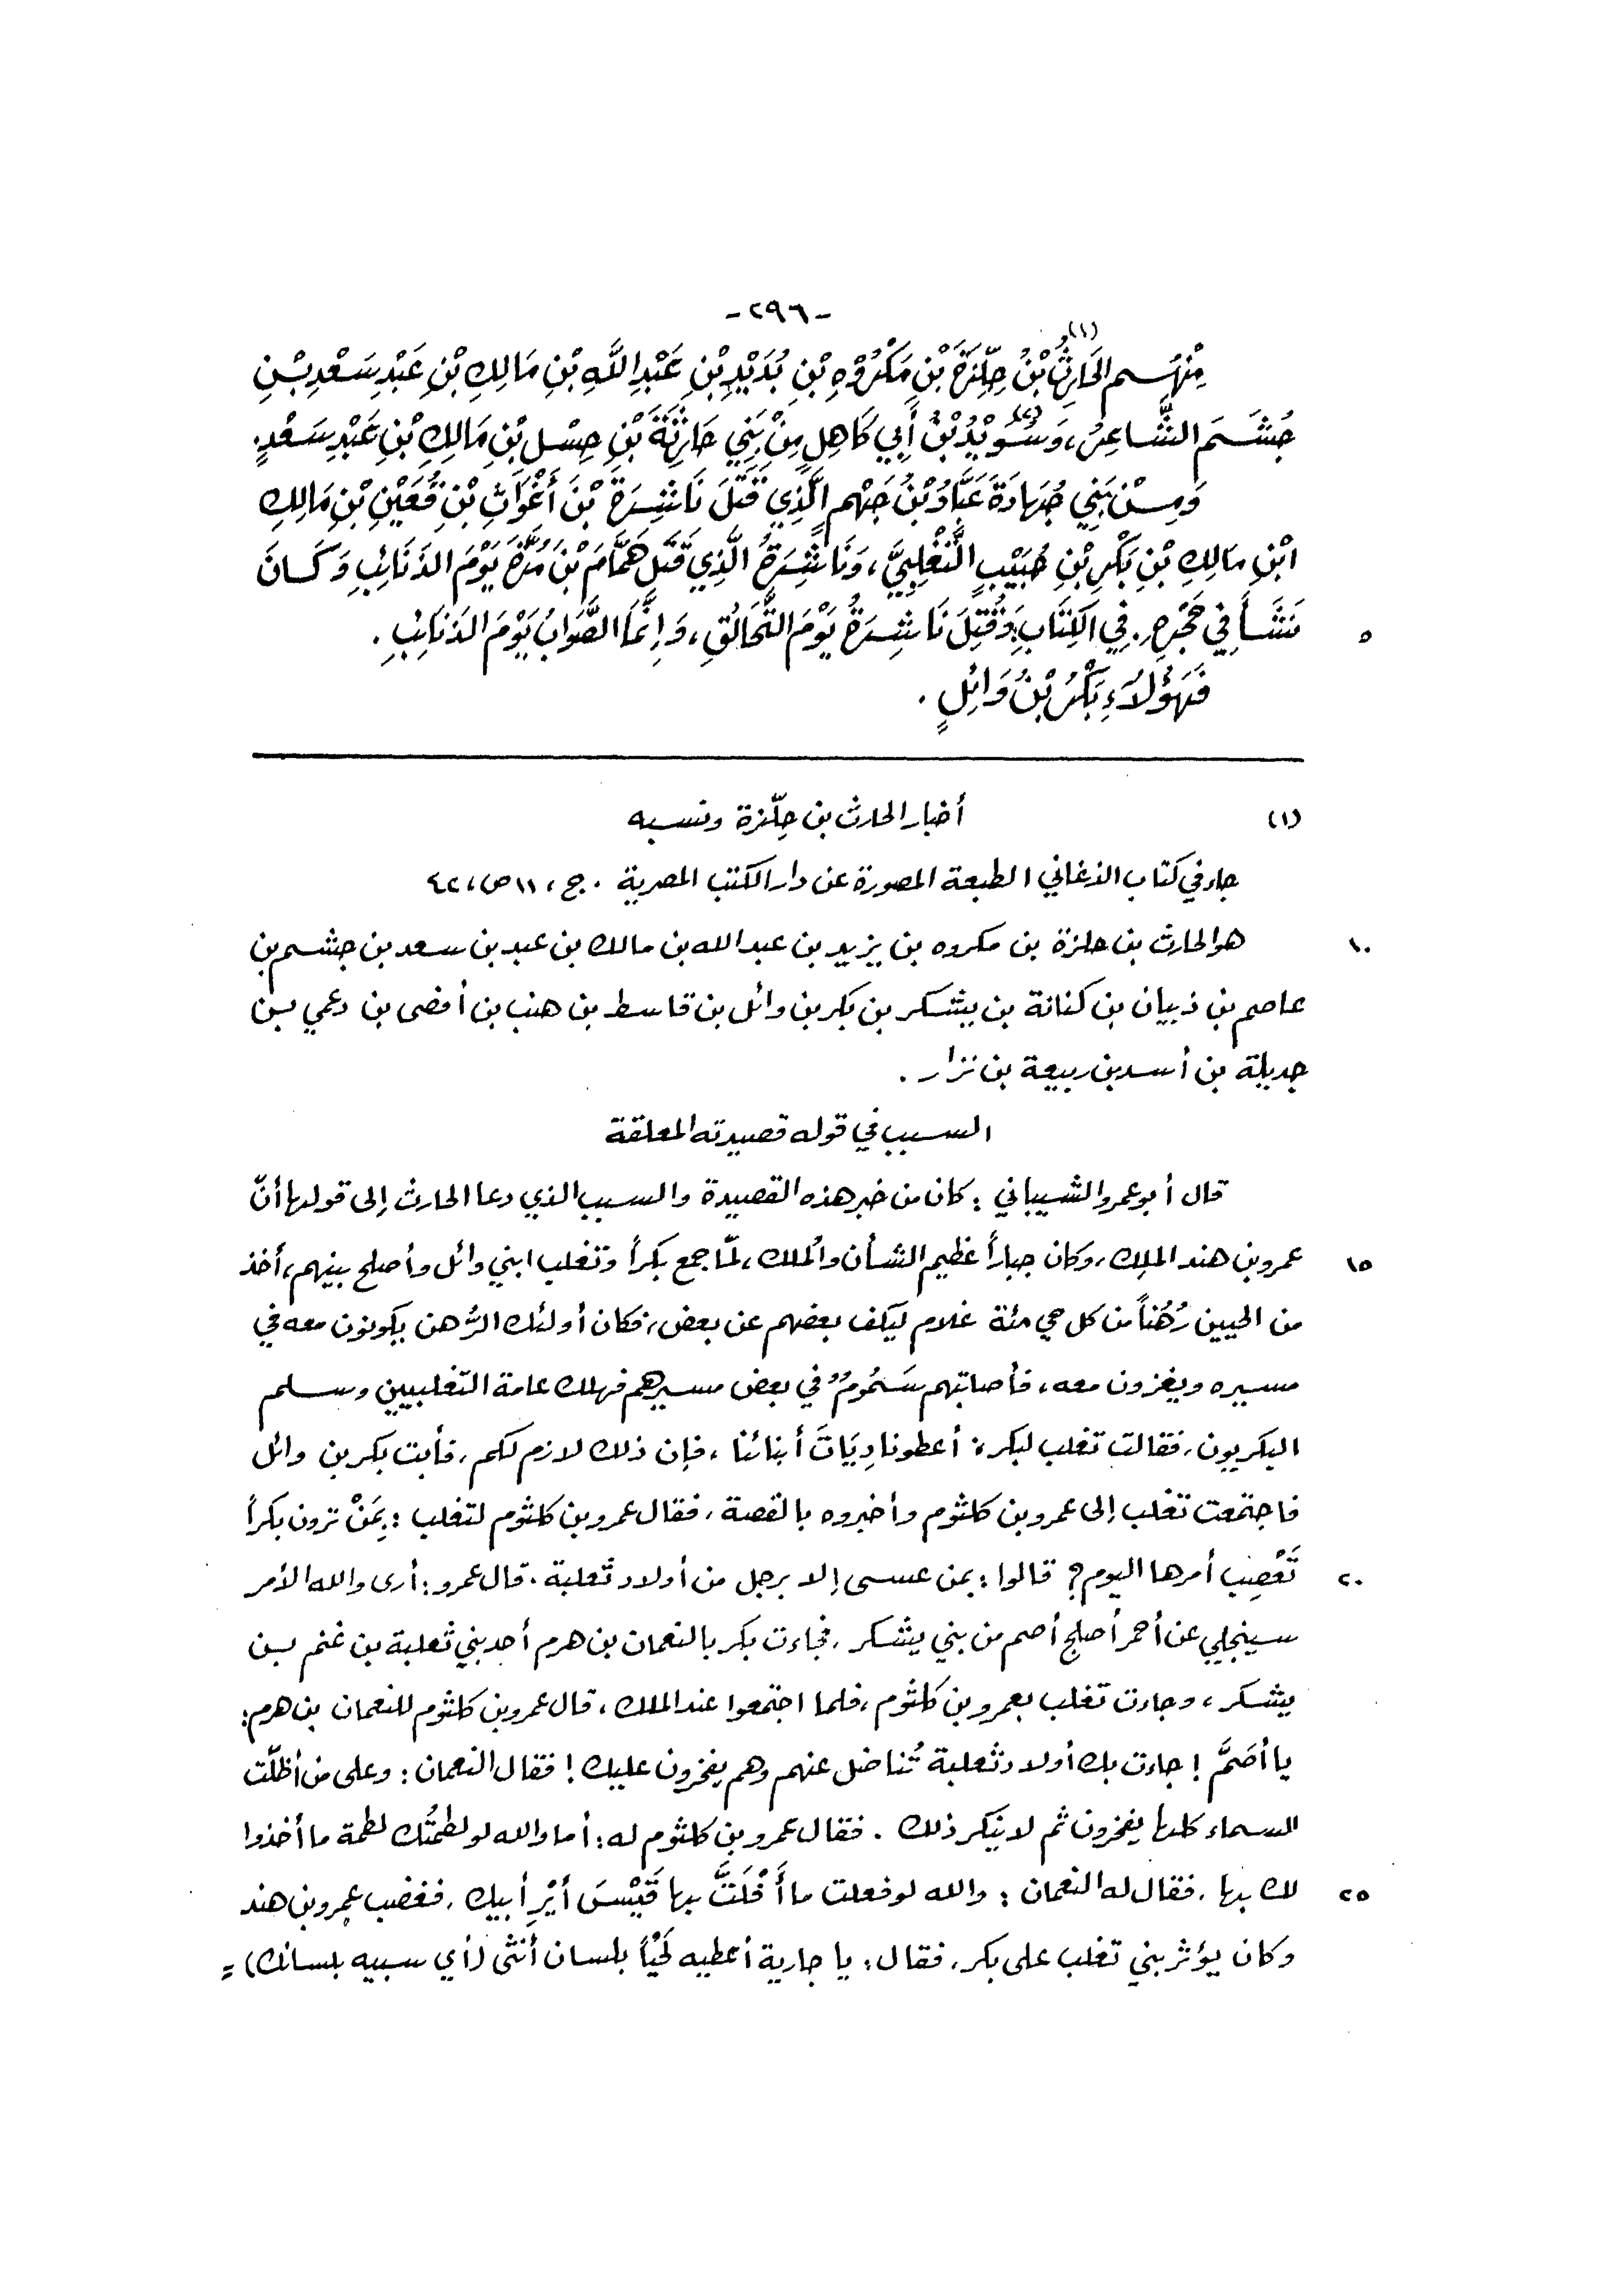 -٢٩٦-
مِنْهُم الحَارِثُ(١) بْنُ حِلِّزَةَ بْنِ مَكْرُوْهِ بْنِ بُدَيْدِ بْنِ عَبْدِ اللَّهِ بْنِ مَالِكِ بْنِ عَبْدِ سَعْدِ بْنِ
جُشَمَ الشَّاعِرُ، وَسُوَيْدُ(٢) بْنُ أَبِي كَاهِلٍ مِنْ بَنِي حَارِثَةَ بْنِ حِسْلِ بْنِ مَالِكِ بْنِ عَبْدِ سَعْدٍ.
وَمِنْ بَنِي جُهَادَةَ عَبَّادُ بْنُ جَهْمٍ الَّذِي قَتَلَ نَاشِرَةَ بْنَ أَغْوَاثِ بْنِ قُعَيْنِ بْنِ مَالِكِ
ابْنِ مَالِكِ بْنِ بَكْرِ بْنِ حُبَيْبٍ التَّغْلِبِيَّ، وَنَاشِرَةُ الَّذِي قَتَلَ هَمَّامَ بْنَ مُرَّةَ يَوْمَ الذَنَائِبِ وَكَانَ
٥ نَشَأَ فِي حَجْرِهِ. فِي الكِتَابِ: وَقُتِلَ نَاشِرَةُ يَوْمَ التَّحَالُقِ، وَإِنَّمَا الصَّوَابُ يَوْمَ الذَنَائِبِ.
فَهَؤُلَاءِ بَكْرُ بْنُ وَائِلٍ.
(١) أخبار الحارث بن حِلِّزة ونسبه
جاء في كتاب الأغاني الطبعة المصورة عن دار الكتب المصرية. ج، ١١ ص، ٤٢
١٠ هو الحارث بن حلزة بن مكروه بن يزيد بن عبد الله بن مالك بن عبد بن سعد بن جشم بن
عاصم بن ذبيان بن كنانة بن يشكر بن بكر بن وائل بن قاسط بن هنب بن أفصى بن دعمي بن
جديلة بن أسد بن ربيعة بن نزار.
السبب في قوله قصيدته المعلقة
قال أبو عمرو الشيباني: كان من خبر هذه القصيدة والسبب الذي دعا الحارث إلى قولها أنّ
١٥ عمرو بن هند الملك، وكان جباراً عظيم الشأن والمُلك، لمّا جمع بكراً وتغلب ابني وائل وأصلح بينهم، أخذ
من الحيين رُهُناً من كل حي مئة غلام ليكف بعضهم عن بعض، فكان أولئك الرُّهن يكونون معه في
مسيره ويغزون معه، فأصابتهم سَمُومٌ في بعض مسيرهم فهلك عامة التغلبيين وسلم
البكريون، فقالت تغلب لبكر: أعطونا دِيَاتَ أبنائنا، فإن ذلك لازم لكم، فأبت بكر بن وائل
فاجتمعت تغلب إلى عمرو بن كلثوم وأخبروه بالقصة، فقال عمرو بن كلثوم لتغلب: بِمَنْ ترون بكراً
٢٠ تَعْصِب أمرها اليوم؟ قالوا: بمن عسى إلا برجل من أولاد ثعلبة. قال عمرو: أرى والله الأمر
سينجلي عن أحمر أصلج أصم من بني يشكر، فجاءت بكر بالنعمان بن هرم أحد بني ثعلبة بن غنم بن
يشكر، وجاءت تغلب بعمرو بن كلثوم، فلما اجتمعوا عند الملك، قال عمرو بن كلثوم للنعمان بن هرم:
يا أصَمَّ! جاءت بك أولاد ثعلبة تُناضل عنهم وهم يفخرون عليك! فقال النعمان: وعلى من أظلّت
السماء كلها يفخرون ثم لا ينكر ذلك. فقال عمرو بن كلثوم له: أما والله لو لطمتُك لطمة ما أخذوا
٢٥ لك بها، فقال له النعمان: والله لو فعلت ما أَفْلَتَّ بها قَيْسَ أَيْرِ أبيك، فغضب عمرو بن هند
وكان يؤثر بني تغلب على بكر، فقال: يا جارية أعطيه لَحْياً بلسان أنثى (أي سبيه بلسانك) =